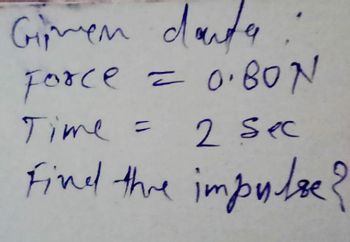 Given data :
Force = 0.80 N
Time = 2 sec
Find the impulse?